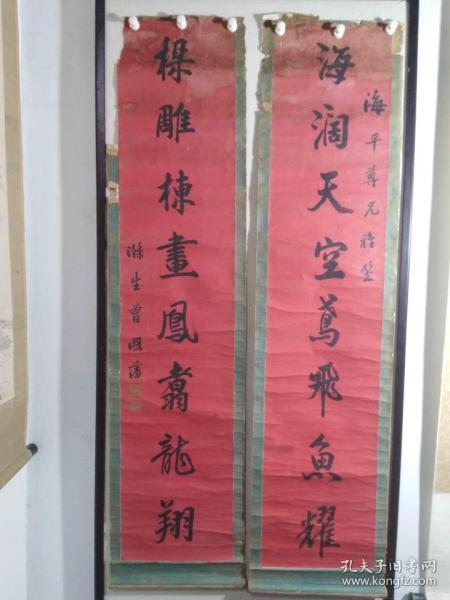 海平尊兄雅鑒
海濶天空鳶飛魚耀
樑雕棟畫鳳翥龍翔
滌生曾國藩
孔夫子旧书网
www.kongfz.com